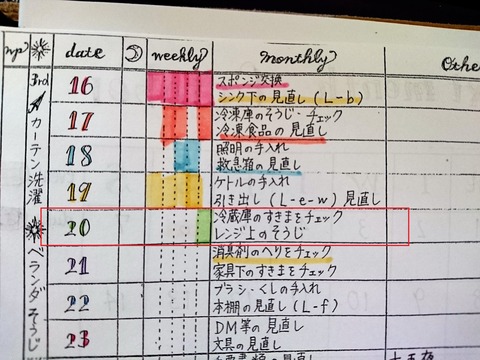 np date weekly monthly Othe
3rd 16 スポンジ交換
シンク下の見直し(L-b)
17 冷凍庫のそうじ・チェック
冷凍食品の見直し
18 照明の手入れ
救急箱の見直し
19 ケトルの手入れ
引き出し(L-e-w)見直し
20 冷蔵庫のすきまをチェック
レンジ上のそうじ
21 消臭剤のへりをチェック
家具下のすきまをチェック
22 ブラシ・くしの手入れ
本棚の見直し(L-f)
23 DM等の見直し
文具の見直し
カーテン洗濯
ベランダそうじ